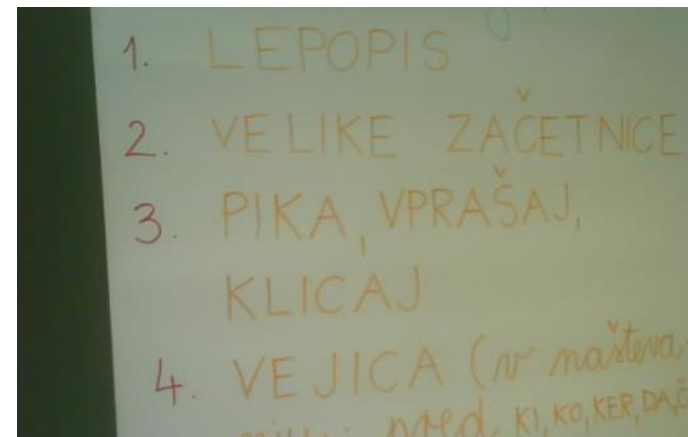 1. LEPOPIS
2. VELIKE ZAČETNICE
3. PIKA, VPRAŠAJ,
KLICAJ
4. VEJICA (v našteva-
pred KI, KO, KER, DA, Č